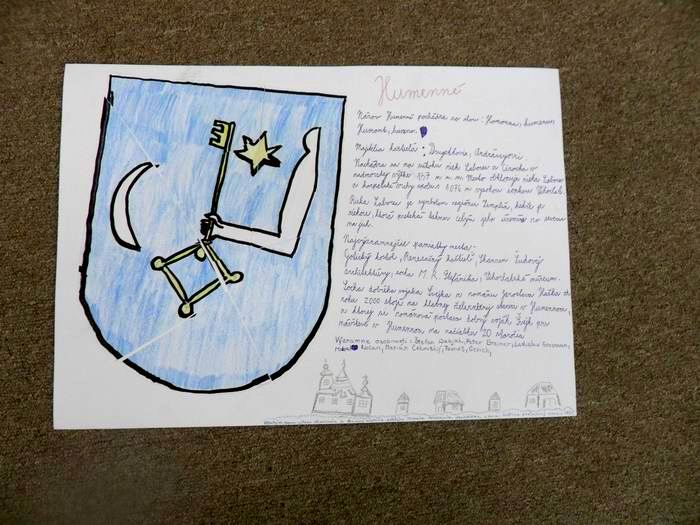 Humenné
Názov Humenné pochádza zo slov: Homonna, humenum
Humoné, humen.
Majitelia kaštieľa: Drugethovia, Andrássyovci
Nachádza sa na sútoku riek Laborec a Cirocha v
nadmorskej výške 157 m n. m. Mesto obklopuje rieka Laborec
a karpatské vrchy vrátane 1 076 m vysokou sopkou Vihorlat.
Rieka Laborec je symbolom regiónu Zemplín, keďže je
riekou, ktorá preteká takmer celým jeho územím zo severu
na juh.
Najvýznamnejšie pamiatky mesta-
Gotický kostol, Renesančný kaštieľ, Skanzen ľudovej
architektúry, socha M. R. Štefánika, Vihorlatské múzeum.
Socha dobrého vojaka Švejka z románu Jaroslava Haška od
roku 2000 stojí na hlavnej železničnej stanici v Humennom,
v ktorej sa románová postava dobrý voják Švejk pri
návšteve v Humennom na začiatku 20. storočia
Významné osobnosti: Štefan Peter Breiner, Ladislav Grosman,
Marián Čekovský,